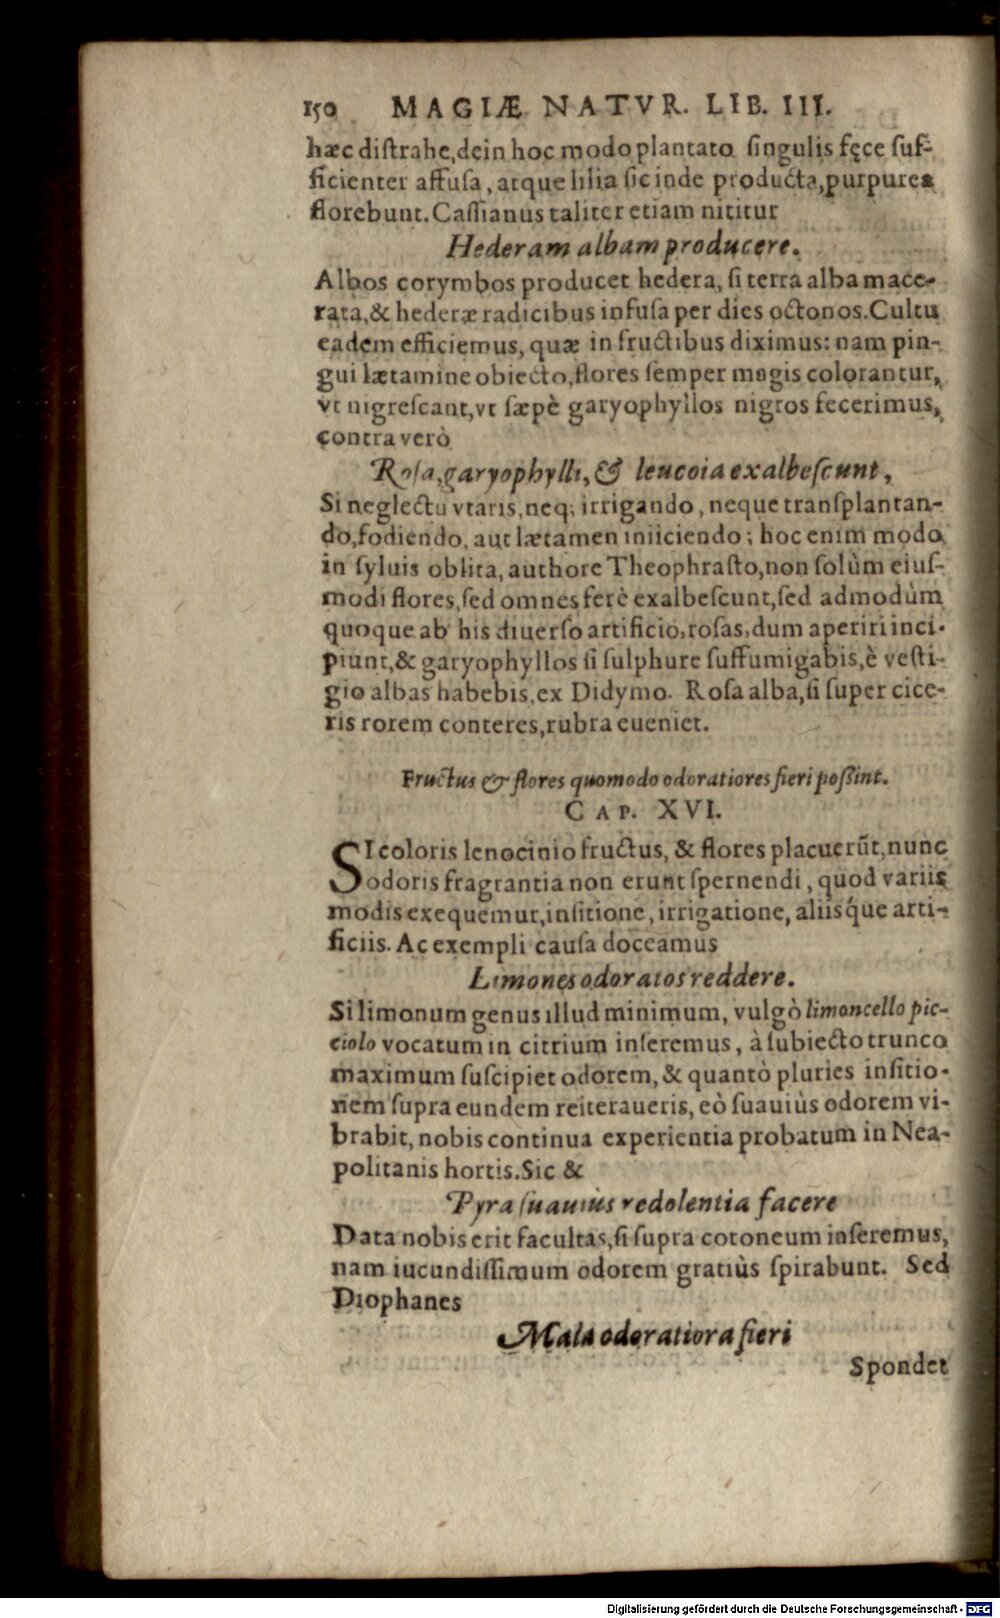 150 MAGIÆ NATVR. LIB. III.
hæc diſtrahe,dein hoc modo plantato ſingulis fęce ſuf-
ficienter affuſa, atque lilia ſic inde producta,purpurea
florebunt. Caſſianus taliter etiam nititur
Hederam albam producere.
Albos corymbos producet hedera, ſi terra alba mace-
rata,& hederæ radicibus infuſa per dies octonos.Cultu
eadem efficiemus, quæ in fructibus diximus: nam pin-
gui lætamine obiecto,flores ſemper magis colorantur,
vt nigreſcant,vt ſæpè garyophyllos nigros fecerimus,
contra verò
Roſa,garyophylli, & leucoia exalbeſcunt,
Si neglectu vtaris,neq; irrigando, neque tranſplantan-
do,fodiendo, aut lætamen iniiciendo; hoc enim modo
in ſyluis oblita, authore Theophraſto,non ſolùm eiuſ-
modi flores,ſed omnes ferè exalbeſcunt,ſed admodùm
quoque ab his diuerſo artificio,roſas,dum aperiri inci-
piunt,& garyophyllos ſi ſulphure ſuffumigabis,è veſti-
gio albas habebis,ex Didymo. Roſa alba,ſi ſuper cice-
ris rorem conteres,rubra eueniet.
Fructus & flores quomodo odoratiores fieri poſsint.
CAP. XVI.
SI coloris lenocinio fructus, & flores placuerũt,nunc
odoris fragrantia non erunt ſpernendi, quod variis
modis exequemur,inſitione, irrigatione, aliisq́ue arti-
ficiis. Ac exempli cauſa doceamus
Limones odoratos reddere.
Si limonum genus illud minimum, vulgò limoncello pic-
ciolo vocatum in citrium inſeremus, à ſubiecto trunco
maximum ſuſcipiet odorem, & quantò pluries inſitio-
nem ſupra eundem reiteraueris, eò ſuauiùs odorem vi-
brabit, nobis continua experientia probatum in Nea-
politanis hortis.Sic &
Pyra ſuauiùs redolentia facere
Data nobis erit facultas,ſi ſupra cotoneum inſeremus,
nam iucundiſſimum odorem gratiùs ſpirabunt. Sed
Diophanes
Mala odoratiora fieri
Spondet
Digitalisierung gefördert durch die Deutsche Forschungsgemeinschaft - DFG